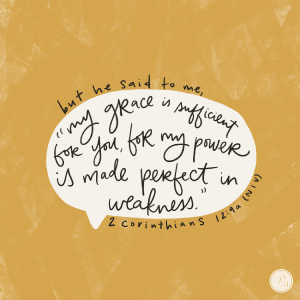 but he said to me,
"my grace is sufficient
for you, for my power
is made perfect in
weakness."
2 Corinthians 12:9a (NIV)